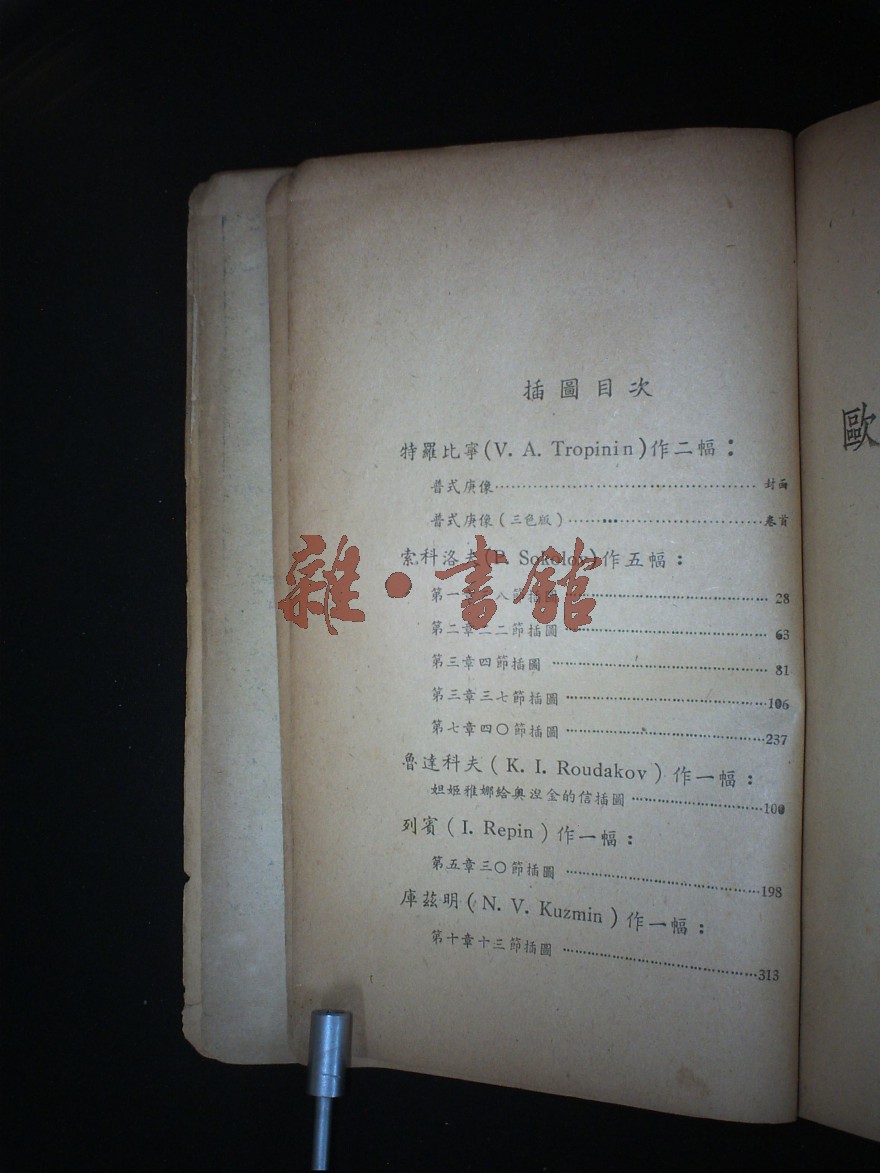 插圖目次
特羅比寧(V. A. Tropinin)作二幅：
普式庚像……封面
普式庚像(三色版)……卷首
索科洛夫(P. Sokolov)作五幅：
第一 八節插圖……28
第二章三二節插圖……63
第三章四節插圖……81
第三章三七節插圖……106
第七章四〇節插圖……237
魯達科夫(K. I. Roudakov)作一幅：
妲姬雅娜給奧涅金的信插圖……100
列賓(I. Repin)作一幅：
第五章三〇節插圖……198
庫茲明(N. V. Kuzmin)作一幅：
第十章十三節插圖……313
歐
雜·書館